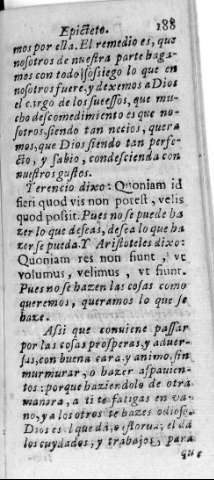 Epicteto. 188
mos por esta. El remedio es, que
nosotros de nuestra parte haga-
mos con todo sossiego lo que en
nosotros fuere, y dexemos a Dios
el cargo de los sucessos, que mu-
cho descomedimiento es que no-
sotros, siendo tan necios, quera
mos, que Dios siendo tan perfe-
cto, y sabio, condescienda con
nuestros gustos.
Terencio dixo: Quoniam id
fieri quod vis non potest, velis
quod possit. Pues no se puede ha
zer lo que deseas, desea lo que ha
zer se pueda. Y Aristoteles dixo:
Quoniam res non fiunt, vt
volumus, velimus, vt fiunt.
Pues no se hazen las cosas como
queremos, queramos lo que se
haze.
Assi que conuiene passar
por las cosas prosperas, y aduer-
sas, con buena cara, y animo, sin
murmurar, o hazer aspauien-
tos: porque haziendolo de otra
manera, a ti te fatigas en va-
no, y a los otros te hazes odioso.
Dios es el que da, o estorua; el da
los cuydados, y trabajos, para
que